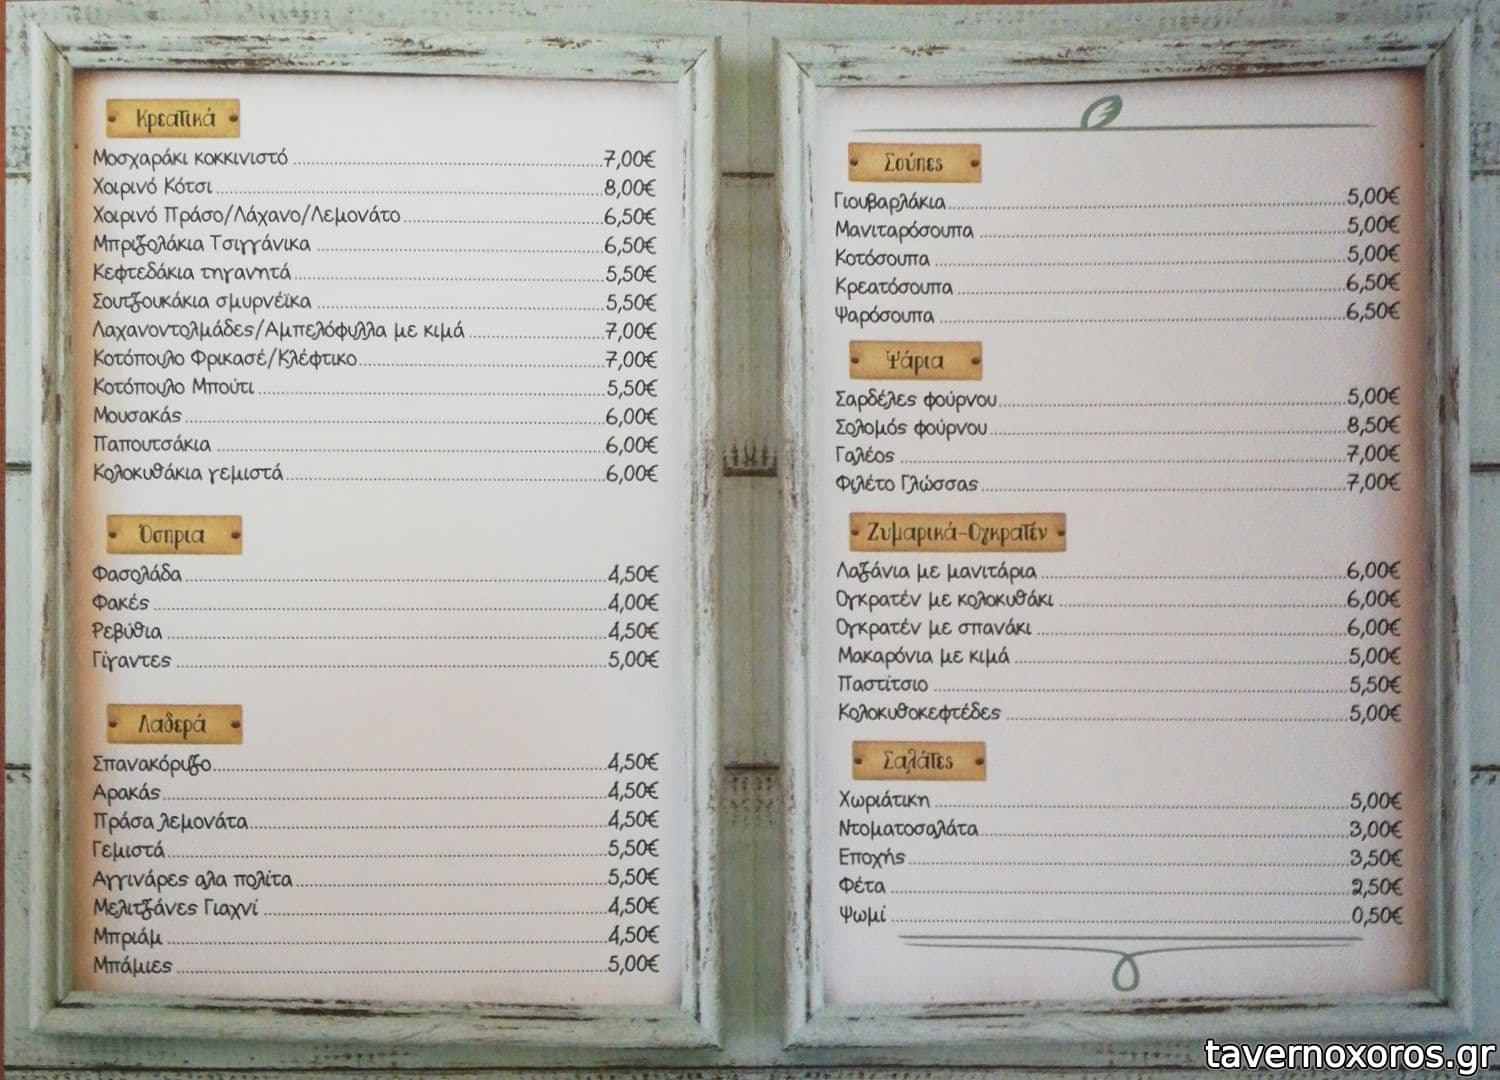 Κρεατικά
Μοσχαράκι κοκκινιστό 7,00€
Χοιρινό Κότσι 8,00€
Χοιρινό Πράσο/Λάχανο/Λεμονάτο 6,50€
Μπριζολάκια Τσιγγάνικα 6,50€
Κεφτεδάκια τηγανητά 5,50€
Σουτζουκάκια σμυρνέϊκα 5,50€
Λαχανοντολμάδες/Αμπελόφυλλα με κιμά 7,00€
Κοτόπουλο Φρικασέ/Κλέφτικο 7,00€
Κοτόπουλο Μπούτι 5,50€
Μουσακάς 6,00€
Παπουτσάκια 6,00€
Κολοκυθάκια γεμιστά 6,00€
Όσπρια
Φασολάδα 4,50€
Φακές 4,00€
Ρεβύθια 4,50€
Γίγαντες 5,00€
Λαδερά
Σπανακόρυζο 4,50€
Αρακάς 4,50€
Πράσα λεμονάτα 4,50€
Γεμιστά 5,50€
Αγγινάρες αλα πολίτα 5,50€
Μελιτζάνες Γιαχνί 4,50€
Μπριάμ 4,50€
Μπάμιες 5,00€
Σούπες
Γιουβαρλάκια 5,00€
Μανιταρόσουπα 5,00€
Κοτόσουπα 5,00€
Κρεατόσουπα 6,50€
Ψαρόσουπα 6,50€
Ψάρια
Σαρδέλες φούρνου 5,00€
Σολομός φούρνου 8,50€
Γαλέος 7,00€
Φιλέτο Γλώσσας 7,00€
Ζυμαρικά-Ογκρατέν
Λαζάνια με μανιτάρια 6,00€
Ογκρατέν με κολοκυθάκι 6,00€
Ογκρατέν με σπανάκι 6,00€
Μακαρόνια με κιμά 5,00€
Παστίτσιο 5,50€
Κολοκυθοκεφτέδες 5,00€
Σαλάτες
Χωριάτικη 5,00€
Ντοματοσαλάτα 3,00€
Εποχής 3,50€
Φέτα 2,50€
Ψωμί 0,50€
tavernoxoros.gr